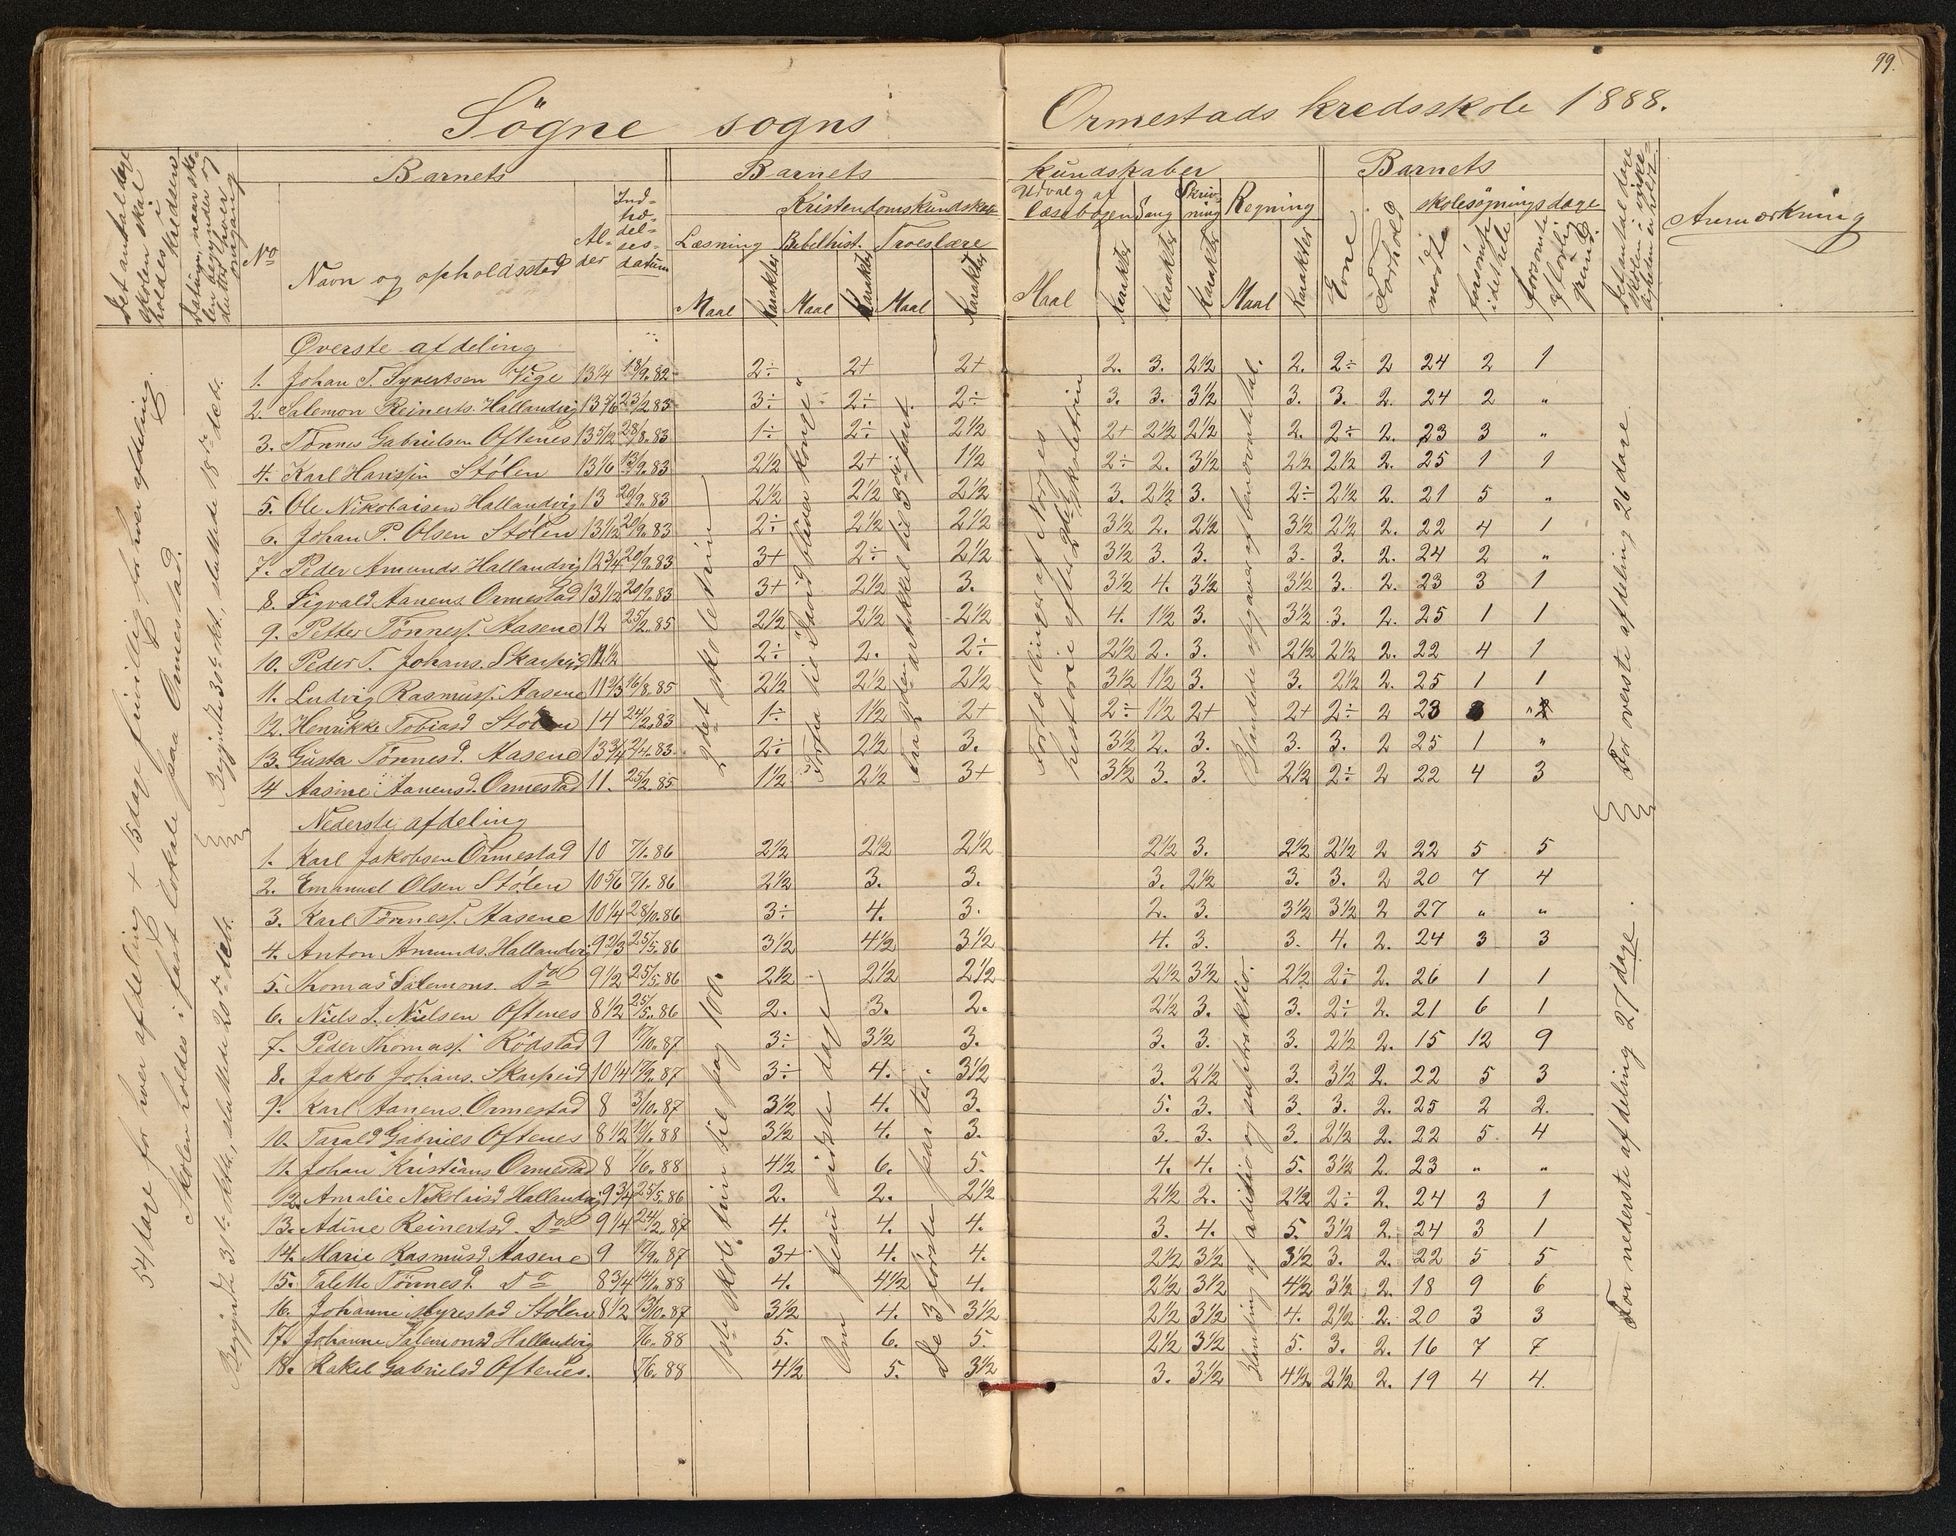 99.
Søgne sogns Ormestads kredsskole 1888.
Det antal dage skolen skal holdes i kredsen
Datum, naar skolen begynder og slutter hver omgang
Barnets
No
Navn og opholdssted
Alder
Indtrædelsesdatum
Barnets kundskaber
Kristendomskundskab
Læsning Bibelhist. Troeslære
Maal Karakter Maal Karakter Maal Karakter
Udvalg af læsebogen Sang Skrivning Regning
Maal Karakter Karakter Karakter Maal Karakter
Barnets
Evne Forhold
skolesøgningsdage
mødte forsømte i det hele forsømte af lovlig grund
Det antal dage skolen i virkeligheden er holdt
Anmærkning
54 dage for hver afdeling + 15 dage frivillig for hver afdeling.
Skolen holdes i fast lokale paa Ormestad.
Øverste afdeling
1. Johan T. Syvertsen Vige 13 1/4 18/9. 82 2÷ 2+ 2+ 2. 3. 2½ 2. 2÷ 2 24 2 1
2. Salemon Reinerts. Hallandvig 13 5/6 23/2 83 3÷ 2÷ 2÷ 3. 3. 3½ 3. 3. 2. 24 2 "
3. Tønnes Gabrielsen Oftenes 13 5/12 28/8. 83 1÷ 2÷ 2½ 2+ 2½ 2½ 2. 2÷ 2. 23 3 "
4. Karl Hanssen Stølen 13 1/6 13/9. 83 2½ 2+ 1½ 2÷ 2. 3½ 2½ 2½ 2. 25 1 1
5. Ole Nikolaisen Hallandvig 13 20/9. 83 2½ 2½ 2½ 3. 2½ 3. 2÷ 2½ 2. 21 5 "
6. Johan P. Olsen Stølen 13 1/2 20/9. 83 2÷ 2½ 2½ 3½ 2. 2½ 3½ 2½ 2. 22 4 1
7. Peder Amunds. Hallandvig 12 3/4 20/9. 83 3+ 2÷ 2½ 3½ 3. 3. 3. 3. 2. 24 2 "
8. Sigvald Aanens. Ormestad 13 1/2 20/9. 83 3+ 2½ 3. 3½ 4. 3½ 3½ 3. 2. 23 3 1
9. Petter Tønness. Aasene 12 25/2. 85 2½ 2½ 2½ 4. 1½ 3. 3½ 3. 2. 25 1 1
10. Peder T. Johans. Skarpeid 2÷ 2. 2÷ 2½ 2. 3. 2½ 2½ 2. 22 4 1
11. Ludvig Rasmuss. Aasene 11 2/3 16/8. 85 2½ 2½ 2½ 3½ 1½ 3. 3. 2½ 2. 25 1 1
12. Henrikke Tobiasd Stølen 14 24/2. 83 1÷ 1½ 2+ 2÷ 1½ 2+ 2+ 2÷ 2 23
13. Gusta Tønnesd. Aasene 13 3/4 2/4. 83 2÷ 2½ 3. 3½ 2. 3. 3. 3. 2 25 1 "
14 Aasine Aanensd. Ormestad 11. 25/2. 85 1½ 2½ 3+ 3½ 3. 3. 2½ 2÷ 2 22 4 3
Begyndte 30te okt., sluttede 18de decb.
2det skoletrin
Forfra til "David bliver konge".
Fra 2den artikkel til 3die part.
Fortællinger af Norges historie efter 2det skoletrin
Blandede opgaver af benævnte tal.
For øverste afdeling 26 dage.
Nederste afdeling
1. Karl Jakobsen Ormestad 10 7/1. 86 2½ 2½ 2½ 2½ 3. 2½ 2½ 2 22 5 5
2. Emanuel Olsen Stølen 10 5/6 7/1. 86 2½ 3. 3. 3. 2½ 3. 3. 2 20 7 4
3. Karl Tønness. Aasene 10 1/4 28/10. 86 3÷ 4. 3. 2. 3. 3½ 3½ 2 27 " "
4. Anton Amunds. Hallandvig 9 2/3 25/5. 86 3½ 4½ 3½ 4. 3. 3. 4. 2. 24 3 3
5. Thomas Salemons. Do 9 1/2 25/5. 86 2½ 2½ 2½ 2½ 3½ 2½ 2÷ 2. 26 1 1
6. Niels J. Nielsen Oftenes 8 1/2 25/5. 86 2. 3. 2. 2½ 3. 3. 2÷ 2. 21 6 1
7. Peder Thomass. Rødstad 9 17/10. 87 3÷ 3½ 3. 3. 3. 3. 2½ 2. 15 12 9
8. Jakob Johans. Skarpeid 10 1/4 17/9. 87 3÷ 4. 3½ 3. 2½ 3. 3½ 2. 22 5 3
9. Karl Aanens. Ormestad 8 3/10. 87 3½ 4. 3. 5. 3. 3. 3. 2. 25 2 2.
10. Tarald Gabriels Oftenes 8 1/2 88 3½ 4. 3. 3. 3. 3. 2½ 2. 22 5 4
11. Johan Kristians. Ormestad 8 1/6. 88 4½ 6. 5. 4. 4. 5. 3½ 2. 23 " "
12. Amalie Nikolaisd. Hallandvig 9 3/4 25/5. 86 2. 2. 2½ 2½ 2. 2½ 2÷ 2. 24 3 1
13. Adine Reinertsd. Do 9 1/4 24/2. 87 4. 4. 4. 3. 4. 5. 3½ 2. 24 3 1
14. Marie Rasmusd. Aasene 9 17/9. 87 3+ 4. 4. 2½ 3½ 3½ 3. 2. 22 5 5
15. Talette Tønnesd. Do 8 3/4 14/1. 88 4. 4½ 4. 2½ 3½ 4½ 3½ 2. 18 9 6
16. Johanne Myrestad Stølen 8 1/2 13/10. 87 3½ 4. 3½ 2½ 3½ 4. 2½ 2. 20 3 3
17. Johanne Salemonsd Hallandvig 7/6. 88 5. 6. 5. 2½ 3½ 5. 3. 2. 16 7 7
18. Rakel Gabrielsd Oftenes. 7/6. 88 4½ 5. 3½ 3. 3½ 4½ 2½ 2. 19 4 4.
Begyndte 31te okt., sluttede 20de decb.
1ste skoletrin til pag 100.
Om Jesu sidste dage
De 3 første parter.
Blanding af aditio og subtraktio.
For nederste afdeling 27 dage.